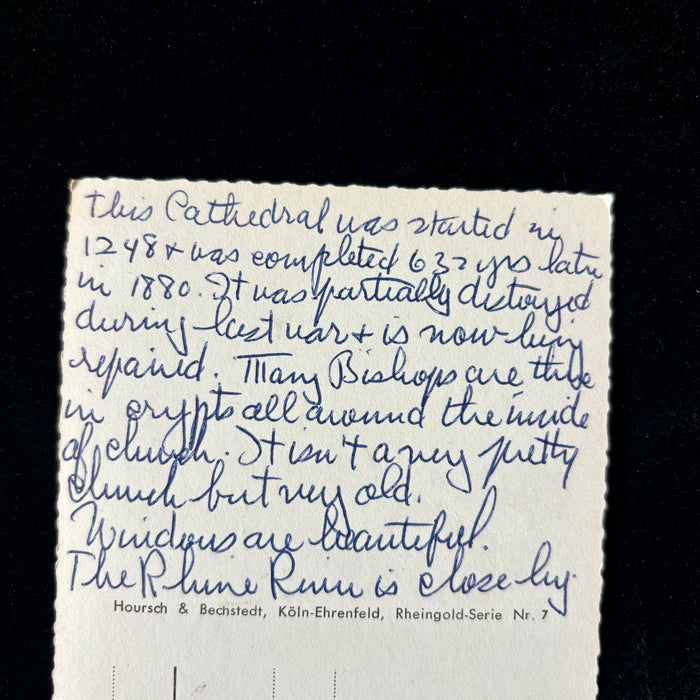 This Cathedral was started in
1248 + was completed 632 yrs later
in 1880. It was partially distoryed
during last war + is now being
repaired. Many Bishops are there
in crypts all around the inside
of church. It isn't a very pretty
church but very old.
Windows are beautiful.
The Rhine River is close by.
Hoursch & Bechstedt, Köln-Ehrenfeld, Rheingold-Serie Nr. 7